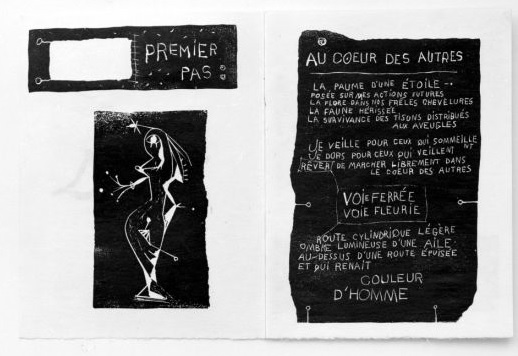 PREMIER
PAS
AU COEUR DES AUTRES
LA PAUME D'UNE ÉTOILE
POSÉE SUR DES ACTIONS FUTURES
LA FLORE DANS NOS FRÊLES CHEVELURES
LA FAUNE HÉRISSÉE
LA SURVIVANCE DES TISONS DISTRIBUÉS
AUX AVEUGLES
JE VEILLE POUR CEUX QUI SOMMEILLENT
JE DORS POUR CEUX QUI VEILLENT
RÊVER DE MARCHER LIBREMENT DANS
LE COEUR DES AUTRES
VOIE FERRÉE
VOIE FLEURIE
ROUTE CYLINDRIQUE LÉGÈRE
OMBRE LUMINEUSE D'UNE AILE
AU-DESSUS D'UNE ROUTE ÉPUISÉE
ET QUI RENAÎT
COULEUR
D'HOMME